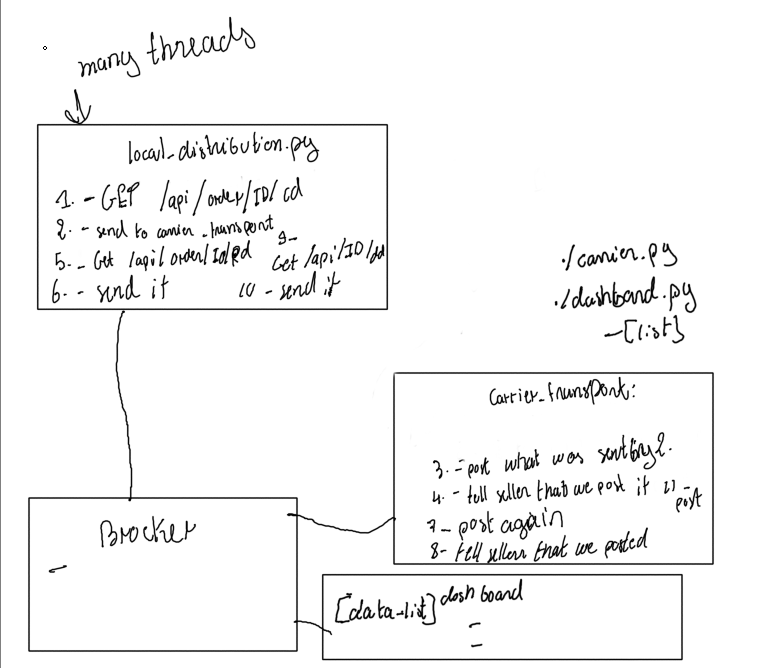 many threads
local_distribution.py
1. - GET /api/order/ID/cd
2. - send to carrier_transport
5. - Get /api/order/Id/Pd
6. - send it
9-
Get /api/ID/dd
10 - send it
./carrier.py
./dashboard.py
-[list]
Carrier_transport:
3. - post what was sent by 2.
4. - tell seller that we post it
11 -
post
7 - post again
8- tell sellers that we posted
Brocker
-
[data-list] dashboard
-
-